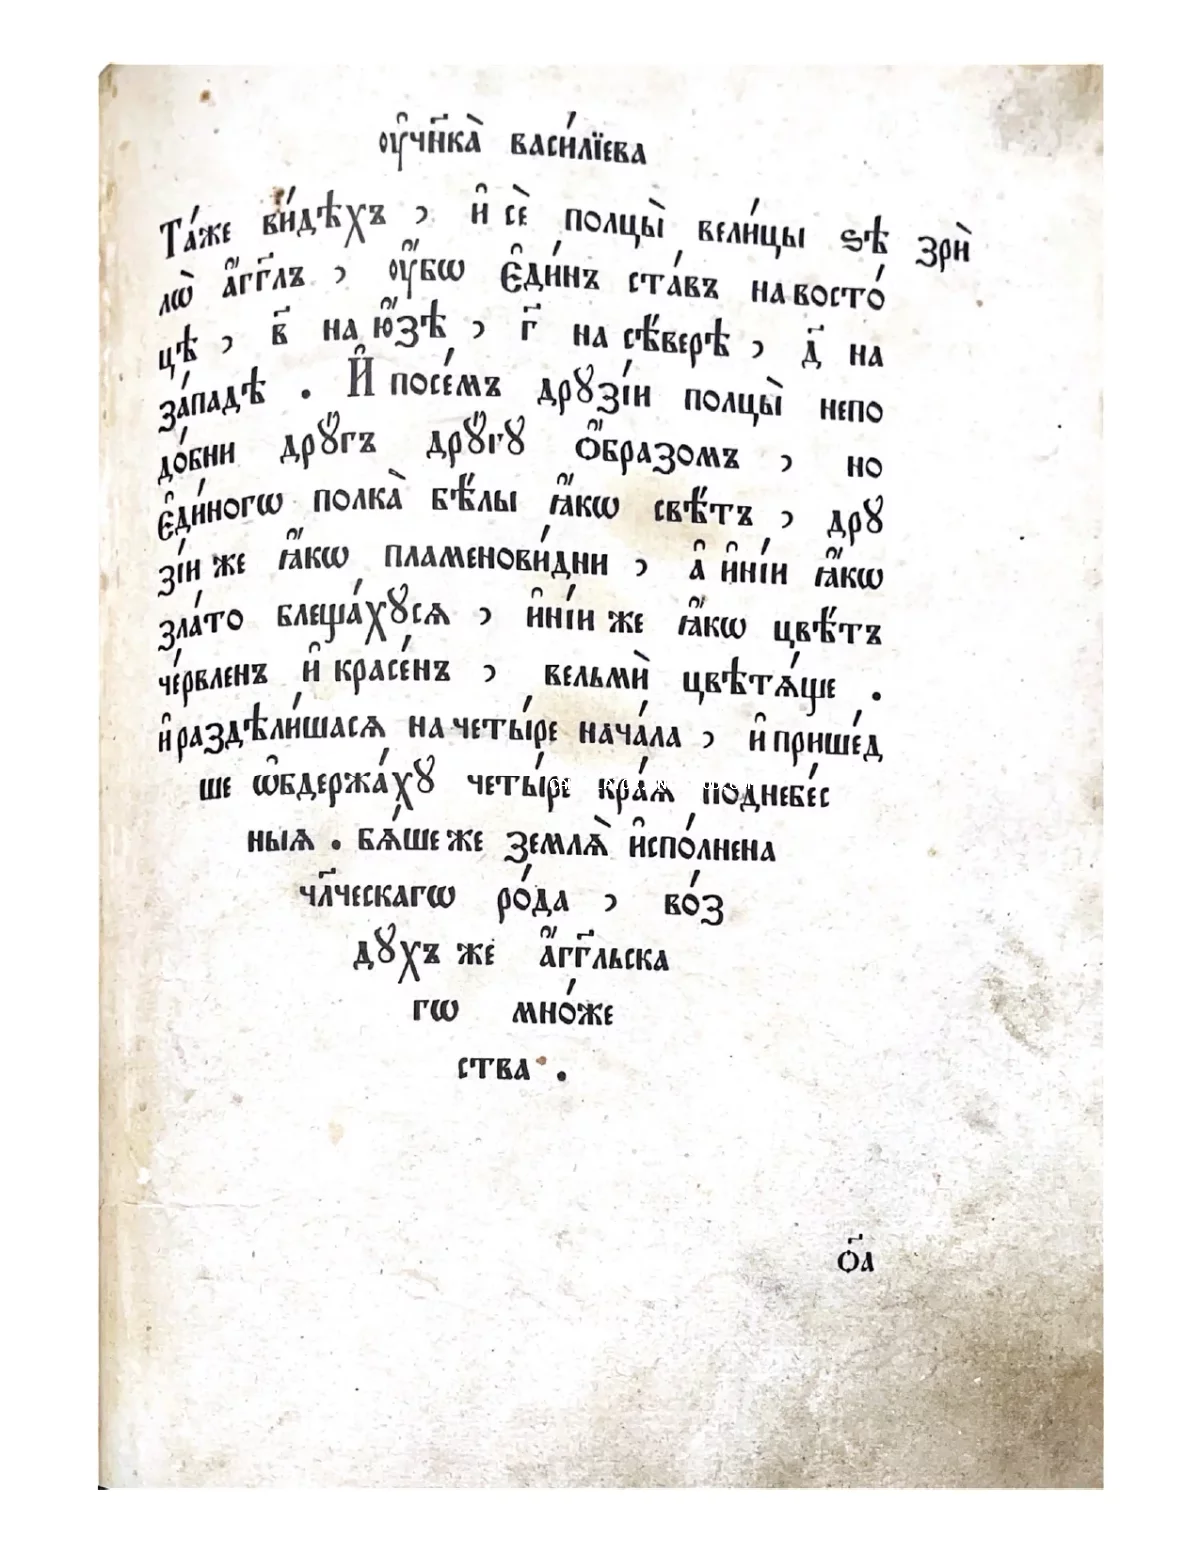 ѹ҆чн҃ка̀ васи́лїева
Та́же ви́дѣхъ , и҆ сѐ полцы̀ вели́цы ѕѣ зри̇̀
лѡ̀ а҆́гг҃лъ , ѹ҆́бѡ є҆ди́нъ ста́въ на восто́
цѣ , в҃ на ю҆́зѣ , г҃ на сѣ́верѣ , д҃ на
за́падѣ . И҆ посе́мъ дрꙋзі́и полцы̀ непо
до́бни дрꙋ́гъ дрꙋ́гꙋ ѻ҆́бразомъ , но
є҆ди́ногѡ полка̀ бѣ́лы ꙗ҆́кѡ свѣ́тъ , дрꙋ
зі́и же ꙗ҆́кѡ пламенови́дни , а҆ и҆ні́и ꙗ҆́кѡ
зла́то блеща́хꙋсѧ , и҆ні́и же ꙗ҆́кѡ цвѣ́тъ
че́рвленъ и҆ красе́нъ , вельмѝ цвѣтѧ́ще .
и҆ раздѣли́шасѧ на четы́ре нача́ла , и҆ прише́д
ше ѡ҆бдержа́хꙋ четы́ре кра́ѧ поднебе́с
ныѧ . бѧ́ше же землѧ̀ и҆спо́лнена
чл҃ческагѡ ро́да , во́з
дꙋхъ же а҆́гг҃льска
гѡ мно́же
ства .
ѻ҃а